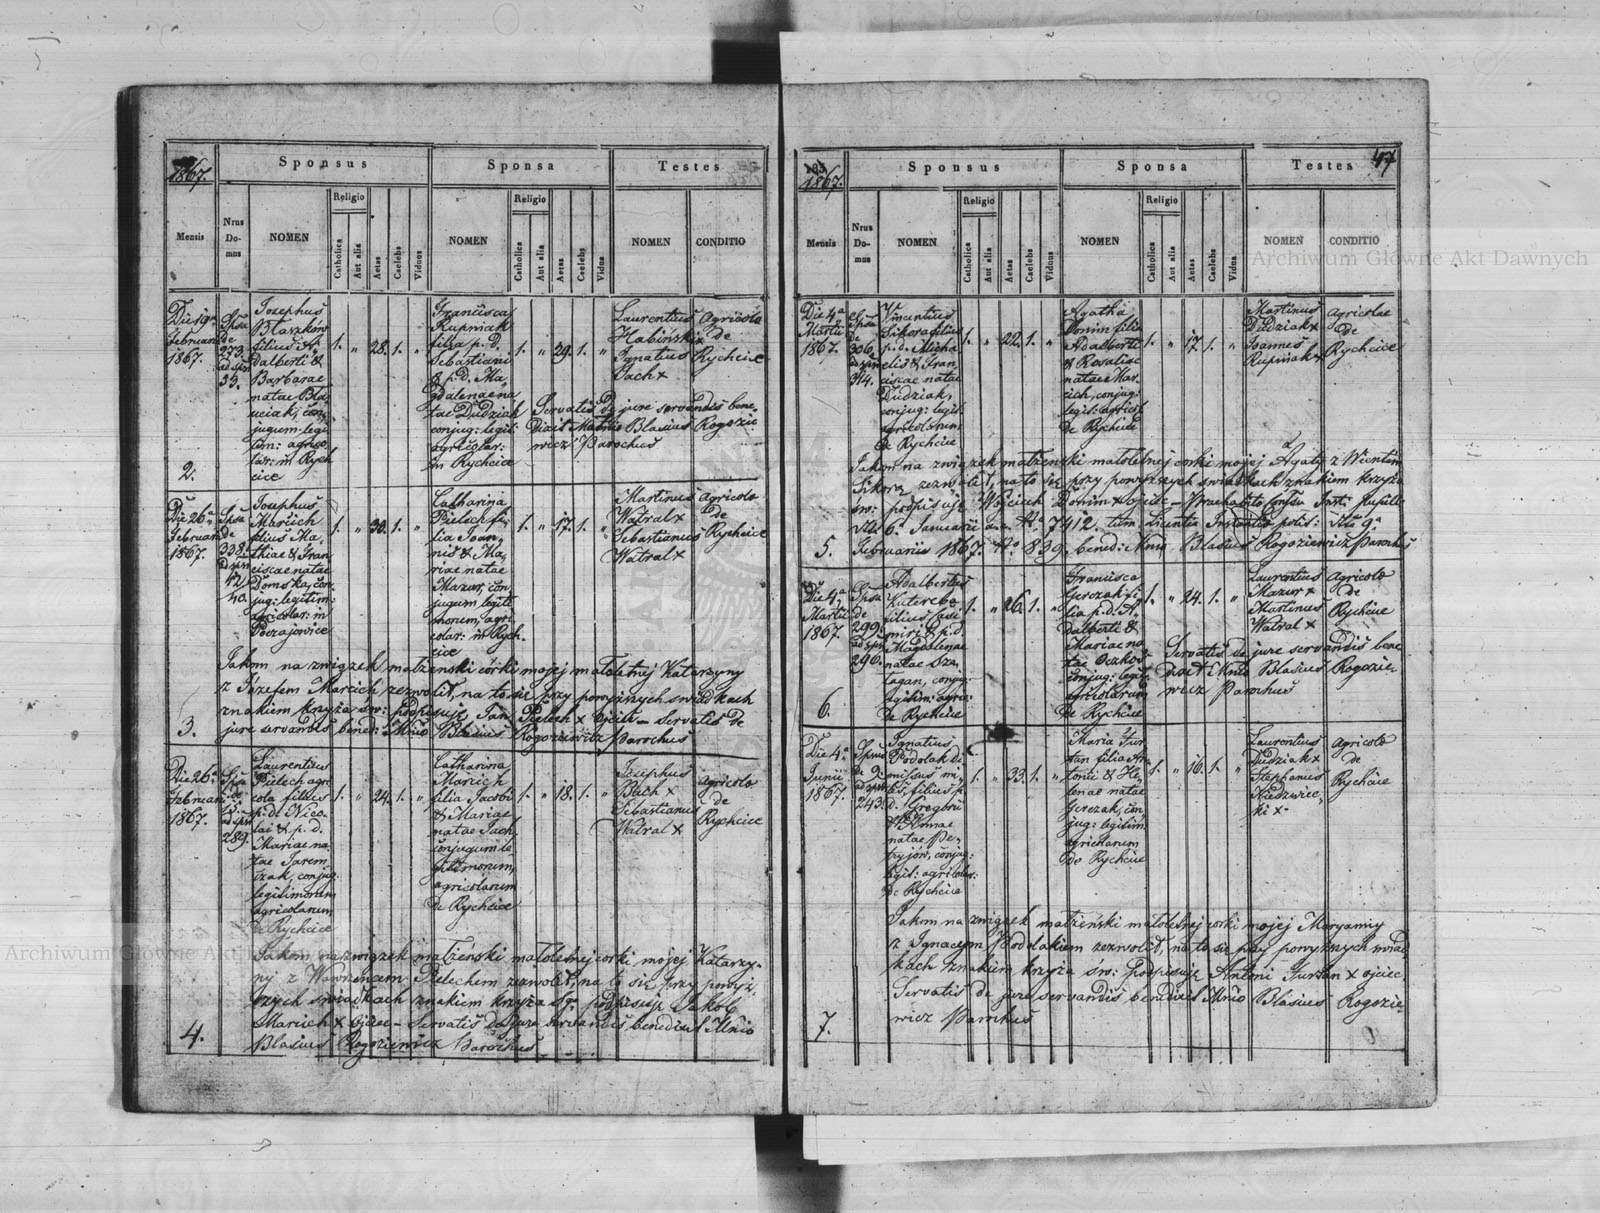 1867.
Sponsus
Sponsa
Testes
Mensis
Nrus
Do-
mus
NOMEN
Religio
Catholica
Aut alia
Aetas
Caelebs
Viduus
NOMEN
Religio
Catholica
Aut alia
Aetas
Caelebs
Vidua
NOMEN
CONDITIO
Die 19a
Februarii
1867.
2.
Josephus
filius A-
dalberti &
Barbarae
natae Bła-
uciak, con-
jugum legi-
tim: agrico-
lar: in Rych
cice
1. " 28. 1. "
Francisca
Rupniak
filia p.d.
Sebastiani
& p.d. Ma-
gdalenae na-
tae Dudziak
conjug: legit:
agricolar:
in Rychcice
1. " 29. 1. "
Laurentius
Habiński x
Ignatius
Jach x
Agricolae
de
Rychcice
Servatis de jure servandis bene-
dixit Matrio Blasius Rogozie
wicz Parochus
Die 26a
Februarii
1867.
3.
Josephus
Marcich
filius Ma-
thiae & Fran-
ciscae natae
Domska, con-
jug: legitim:
agricolar: in
Poczajowice
1. " 30. 1. "
Catharina
Pielech fi-
lia Joan-
nis & Ma-
riae natae
Mazur, con-
jugum legiti-
morum, agri-
colar: in Rych-
cice
1. " 17. 1. "
Martinus
Watral x
Sebastianus
Watral x
Agricolae
de
Rychcice
Jakom na związek małżenski córki mojej małoletniej Katarzyny
z Józefem Marcich zezwolił, na to się przy powyższych swiadkach
znakiem krzyża sw: podpisuję Jan Pielech x Ojciec – Servatis de
jure servandis bened: Mrio Blasius Rogoziewicz Parochus
Die 26a
Februarii
1867.
4.
Laurentius
Pielech agri-
cola filius
p.d. Nico-
lai & p.d.
Mariae na-
tae Jarem-
czak, conjug:
legitimorum
agricolarum
de Rychcice
1. " 24. 1. "
Catharina
Marcich
filia Jacobi
& Mariae
natae Jach
conjugum le-
gitimorum,
agricolarum
de Rychcice
1. " 18. 1. "
Josephus
Sebastianus
Watral x
Agricolae
de
Rychcice
Jakom na związek małżenski małoletniej córki mojej Katarzy-
ny z Wawrzencem Pielechem zezwolił, na to się przy powyż-
szych swiadkach znakiem krzyża podpisuję Jakób
Marcich x Ojciec – Servatis de jure servandis benedixit Mrio
Blasius Rogoziewicz Parochus
47
1867.
Sponsus
Sponsa
Testes
Mensis
Nrus
Do-
mus
NOMEN
Religio
Catholica
Aut alia
Aetas
Caelebs
Viduus
NOMEN
Religio
Catholica
Aut alia
Aetas
Caelebs
Vidua
NOMEN
CONDITIO
Die 4a
Martii
1867.
5.
Vincentius
Sikora filius
p.d. Micha
elis & Fran-
ciscae natae
Dudziak,
conjug: legit:
agricolarum
de Rychcice
1. " 22. 1. "
Agatha
Domin filia
Adalberti
& Rosaliae
natae Mar-
cich, conjug:
legit: agricol:
de Rychcice
1. " 17. 1. "
Martinus
Dudziak x
Joannes
Rupniak x
Agricolae
de
Rychcice
Jakom na związek małżenski małoletniej corki mojej Agaty z Wicentem
Sikorą zezwolił, na to się przy powyższych swiadkach znakiem krzyża
sw: podpisuję Wojciech Domin x ojciec –
6a Januarii 7412.
Februarii 1867. No 839. bened: Mrio Blasius Rogoziewicz Parochus
Die 4a
Martii
1867.
6.
Spsa
de
299.
ad spm
296.
Adalbertus
Kutereba
filius Casi-
miri & p.d.
Magdalenae
natae Sza-
łagan, conjug:
legitim: agric:
de Rychcice
1. " 26. 1. "
Francisca
Gerczak fi-
lia p.d. A-
dalberti &
Mariae na-
tae Oczkoś
conjug: legit:
agricolarum
de Rychcice
1. " 24. 1. "
Laurentius
Mazur x
Martinus
Watral x
Agricolae
de
Rychcice
Servatis de jure servandis bene
dixit Mrio Blasius Rogozie-
wicz Parochus
Die 4a
Junii
1867.
7.
Ignatius
Podolak di-
missus mi-
les, filius p.
d. Gregorii
natae Pe-
tryjów, conjug:
legit: agricolar:
de Rychcice
1. " 33. 1. "
Maria Fur-
tan filia An-
tonii & He-
lenae natae
Gerczak, con
jug: legitim:
agricolarum
de Rychcice
1. " 16. 1. "
Laurentius
Dudziak x
Stephanus
Niedzwiec-
ki x
Agricolae
de
Rychcice
Jakom na związek małżeński małoletniej córki mojej Maryanny
z Ignacym Podolakiem zezwolił, na to się przy powyższych swiad-
kach znakiem krzyża sw: podpisuję Antoni Furtan x ojciec.
Servatis de jure servandis benedixit Mrio Blasius Rogozie-
wicz Parochus
Archiwum Główne Akt Dawnych
Archiwum Główne Akt Dawnych